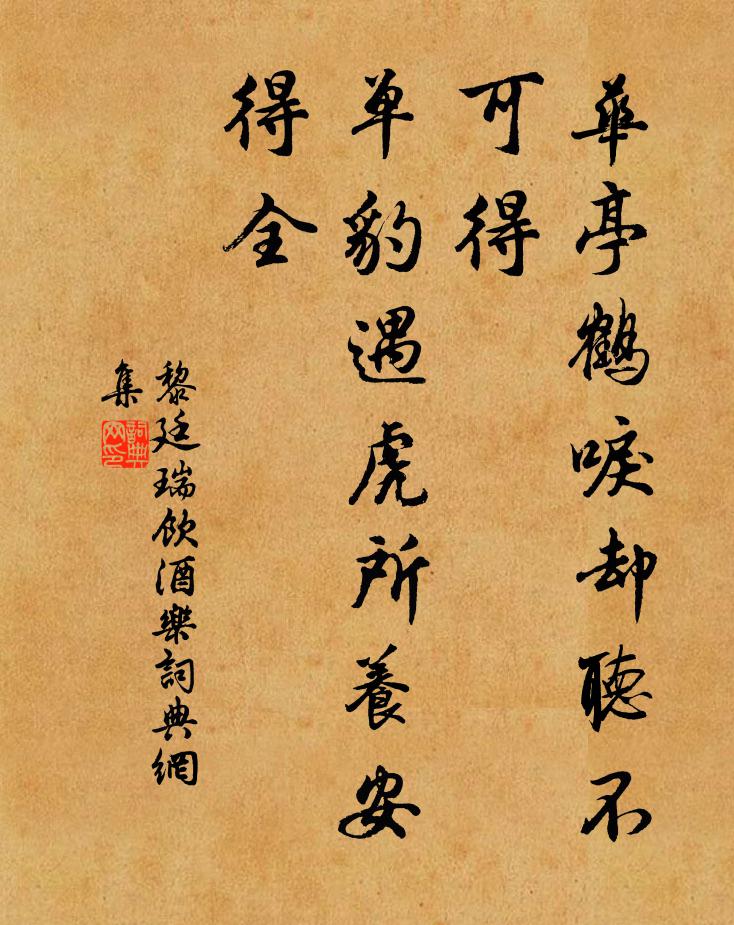 華亭鶴唳却聽不
可得
单豹遇虎所養安
得全
黎廷瑞飲酒樂詞典網
集
詞典網印